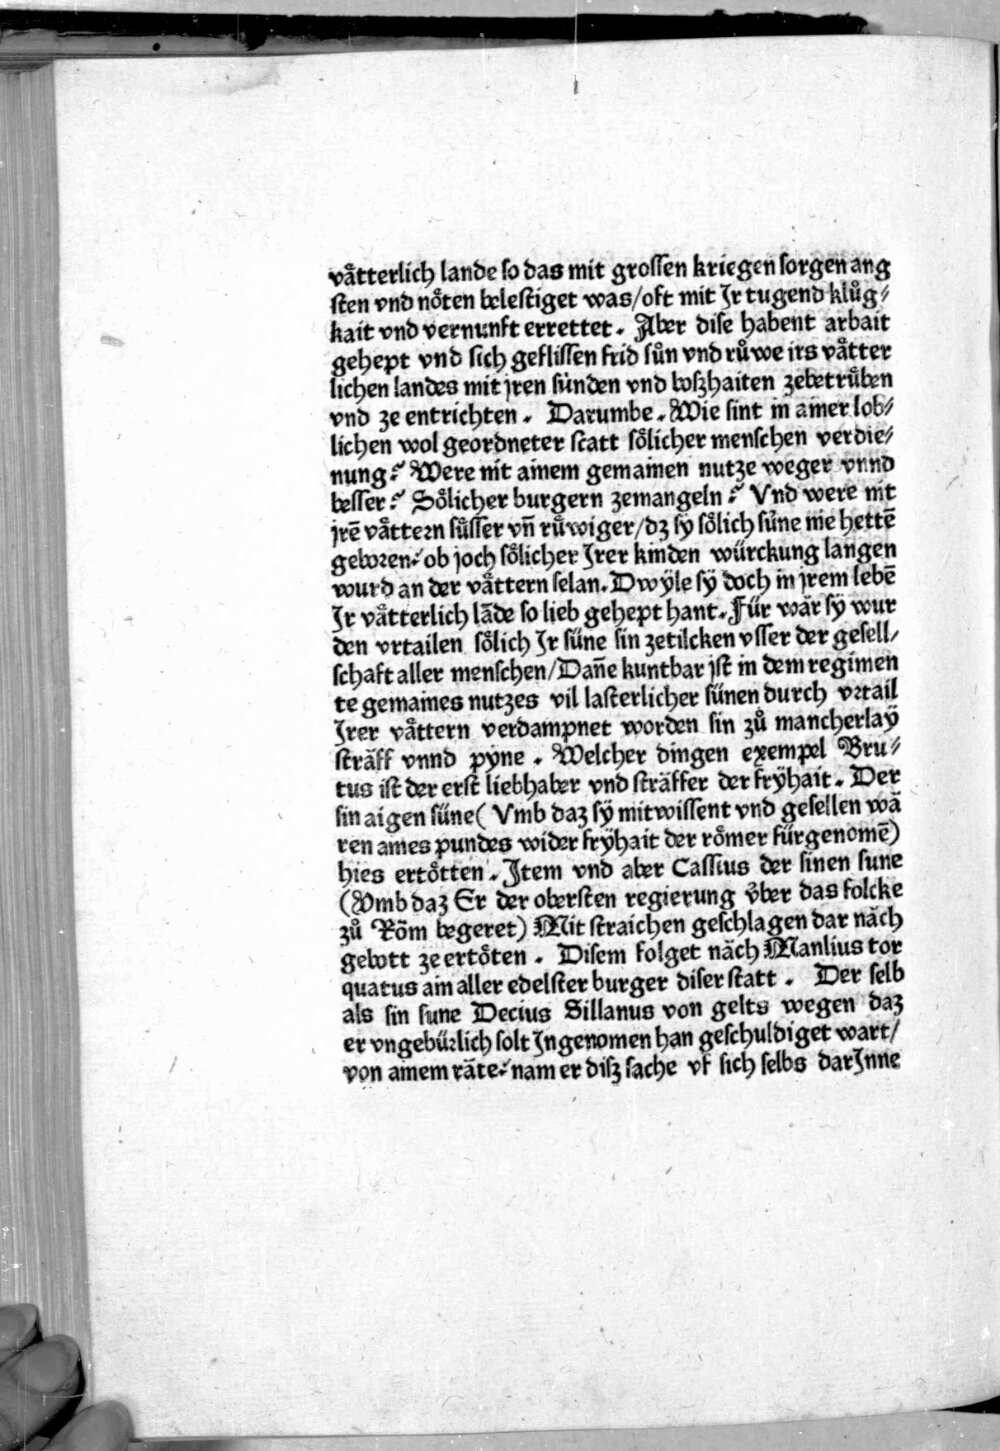 våtterlich lande so das mit grossen kriegen sorgen ang
sten vnd nöten belestiget was/oft mit Jr tugend klůg⸗
kait vnd vernunft errettet. Aber dise habent arbait
gehept vnd sich geflissen frid sůn vnd růwe irs våtter
lichen landes mit jren sünden vnd boszhaiten zebetrůben
vnd ze entrichten. Darumbe. Wie sint in ainer lob⸗
lichen wol geordneter statt sőlicher menschen verdie⸗
nung? Were nit ainem gemainen nutze weger vnnd
besser? Sőlicher burgern zemangeln? Vnd were nit
jrē våttern sůsser vn̄ růwiger/dz sy̋ sőlich süne nie hettē
geboren? ob joch sőlicher Jrer kinden würckung langen
wurd an der våttern selan. Dwÿle sÿ doch in jrem lebē
Jr våtterlich lāde so lieb gehept hant. Für war sÿ wur
den vrtailen sőlich Jr süne sin zetilcken vsser der gesell⸗
schaft aller menschen/Dan̄e kuntbar jst in dem regimen
te gemaines nutzes vil lasterlicher sünen durch vrtail
Jrer våttern verdampnet worden sin zů mancherlaÿ
sträff vnnd pÿne. Welcher dingen exempel Bru⸗
tus ist der erst liebhaber vnd sträffer der frÿhait. Der
sin aigen süne (Vmb daz sÿ mitwissent vnd gesellen wä
ren aines pundes wider frÿhait der rőmer fürgenomē)
hies ertőtten. Jtem vnd aber Cassius der sinen sune
(Vmb daz Er der obersten regierung v̊ber das folcke
zů Röm begeret) Mit straichen geschlagen dar näch
gebott ze ertőten. Disem folget näch Manlius tor
quatus ain aller edelster burger diser statt. Der selb
als sin sune Decius Sillanus von gelts wegen daz
er vngebürlich solt Jngenomen han geschuldiget wart/
von ainem räte? nam er disz sache vf sich selbs darJnne